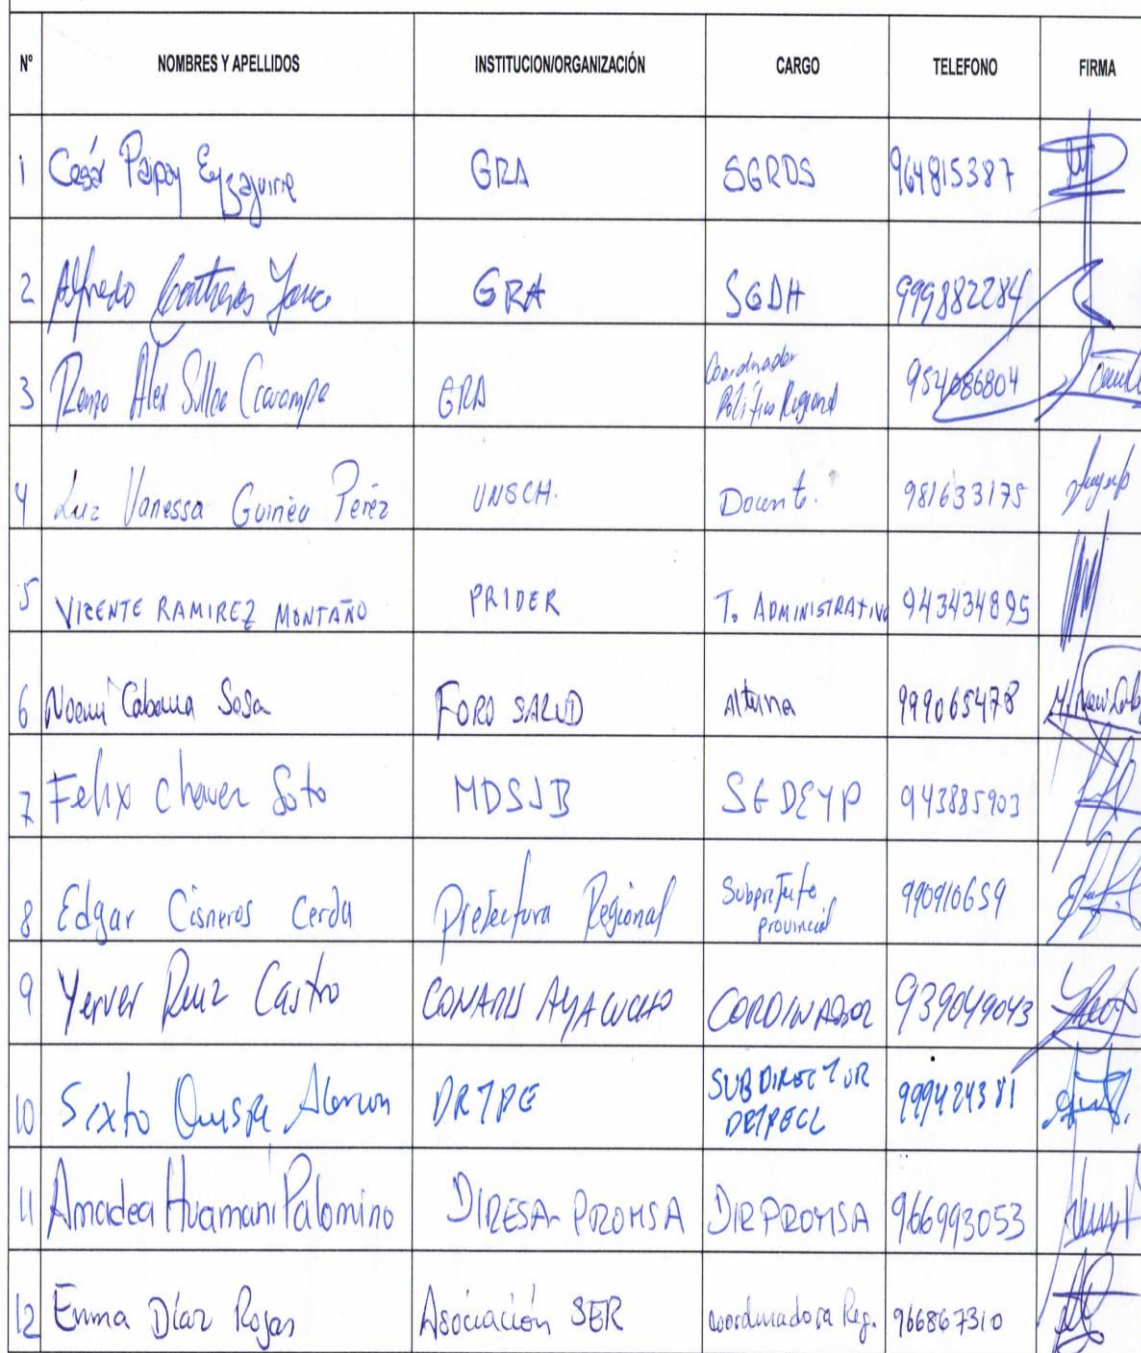 Nº NOMBRES Y APELLIDOS INSTITUCION/ORGANIZACIÓN CARGO TELEFONO FIRMA
1 Cesár Paipay Eyzaguirre GRA SGRDS 964815387
2 Alfredo Contreras Yance GRA SGDH 999882284
3 Renzo Alex Sullca GRA Coordinador
Político Regional 954686804
4 Luz Vanessa Guinea Pérez UNSCH. Docente. 981633175
5 VICENTE RAMIREZ MONTAÑO PRIDER T. ADMINISTRATIVO 943434895
6 Noemi Cabana Sosa FORO SALUD Alterna 999065478
7 Felix Chavez Soto MDSJB SGDEYP 943885903
8 Edgar Cisneros Cerda Prefectura Regional Subprefecto
provincial 990910659
9 Yerver Ruiz Castro CONADIS AYACUCHO CORDINADOR 939049043
10 Sixto Quispe Alarcon DRTPE SUBDIRECTOR
DRTPECL 999424381
11 Amadea Huamaní Palomino DIRESA-PROMSA DIRPROMSA 966993053
12 Emma Díaz Rojas Asociación SER coordinadora Reg. 966867310